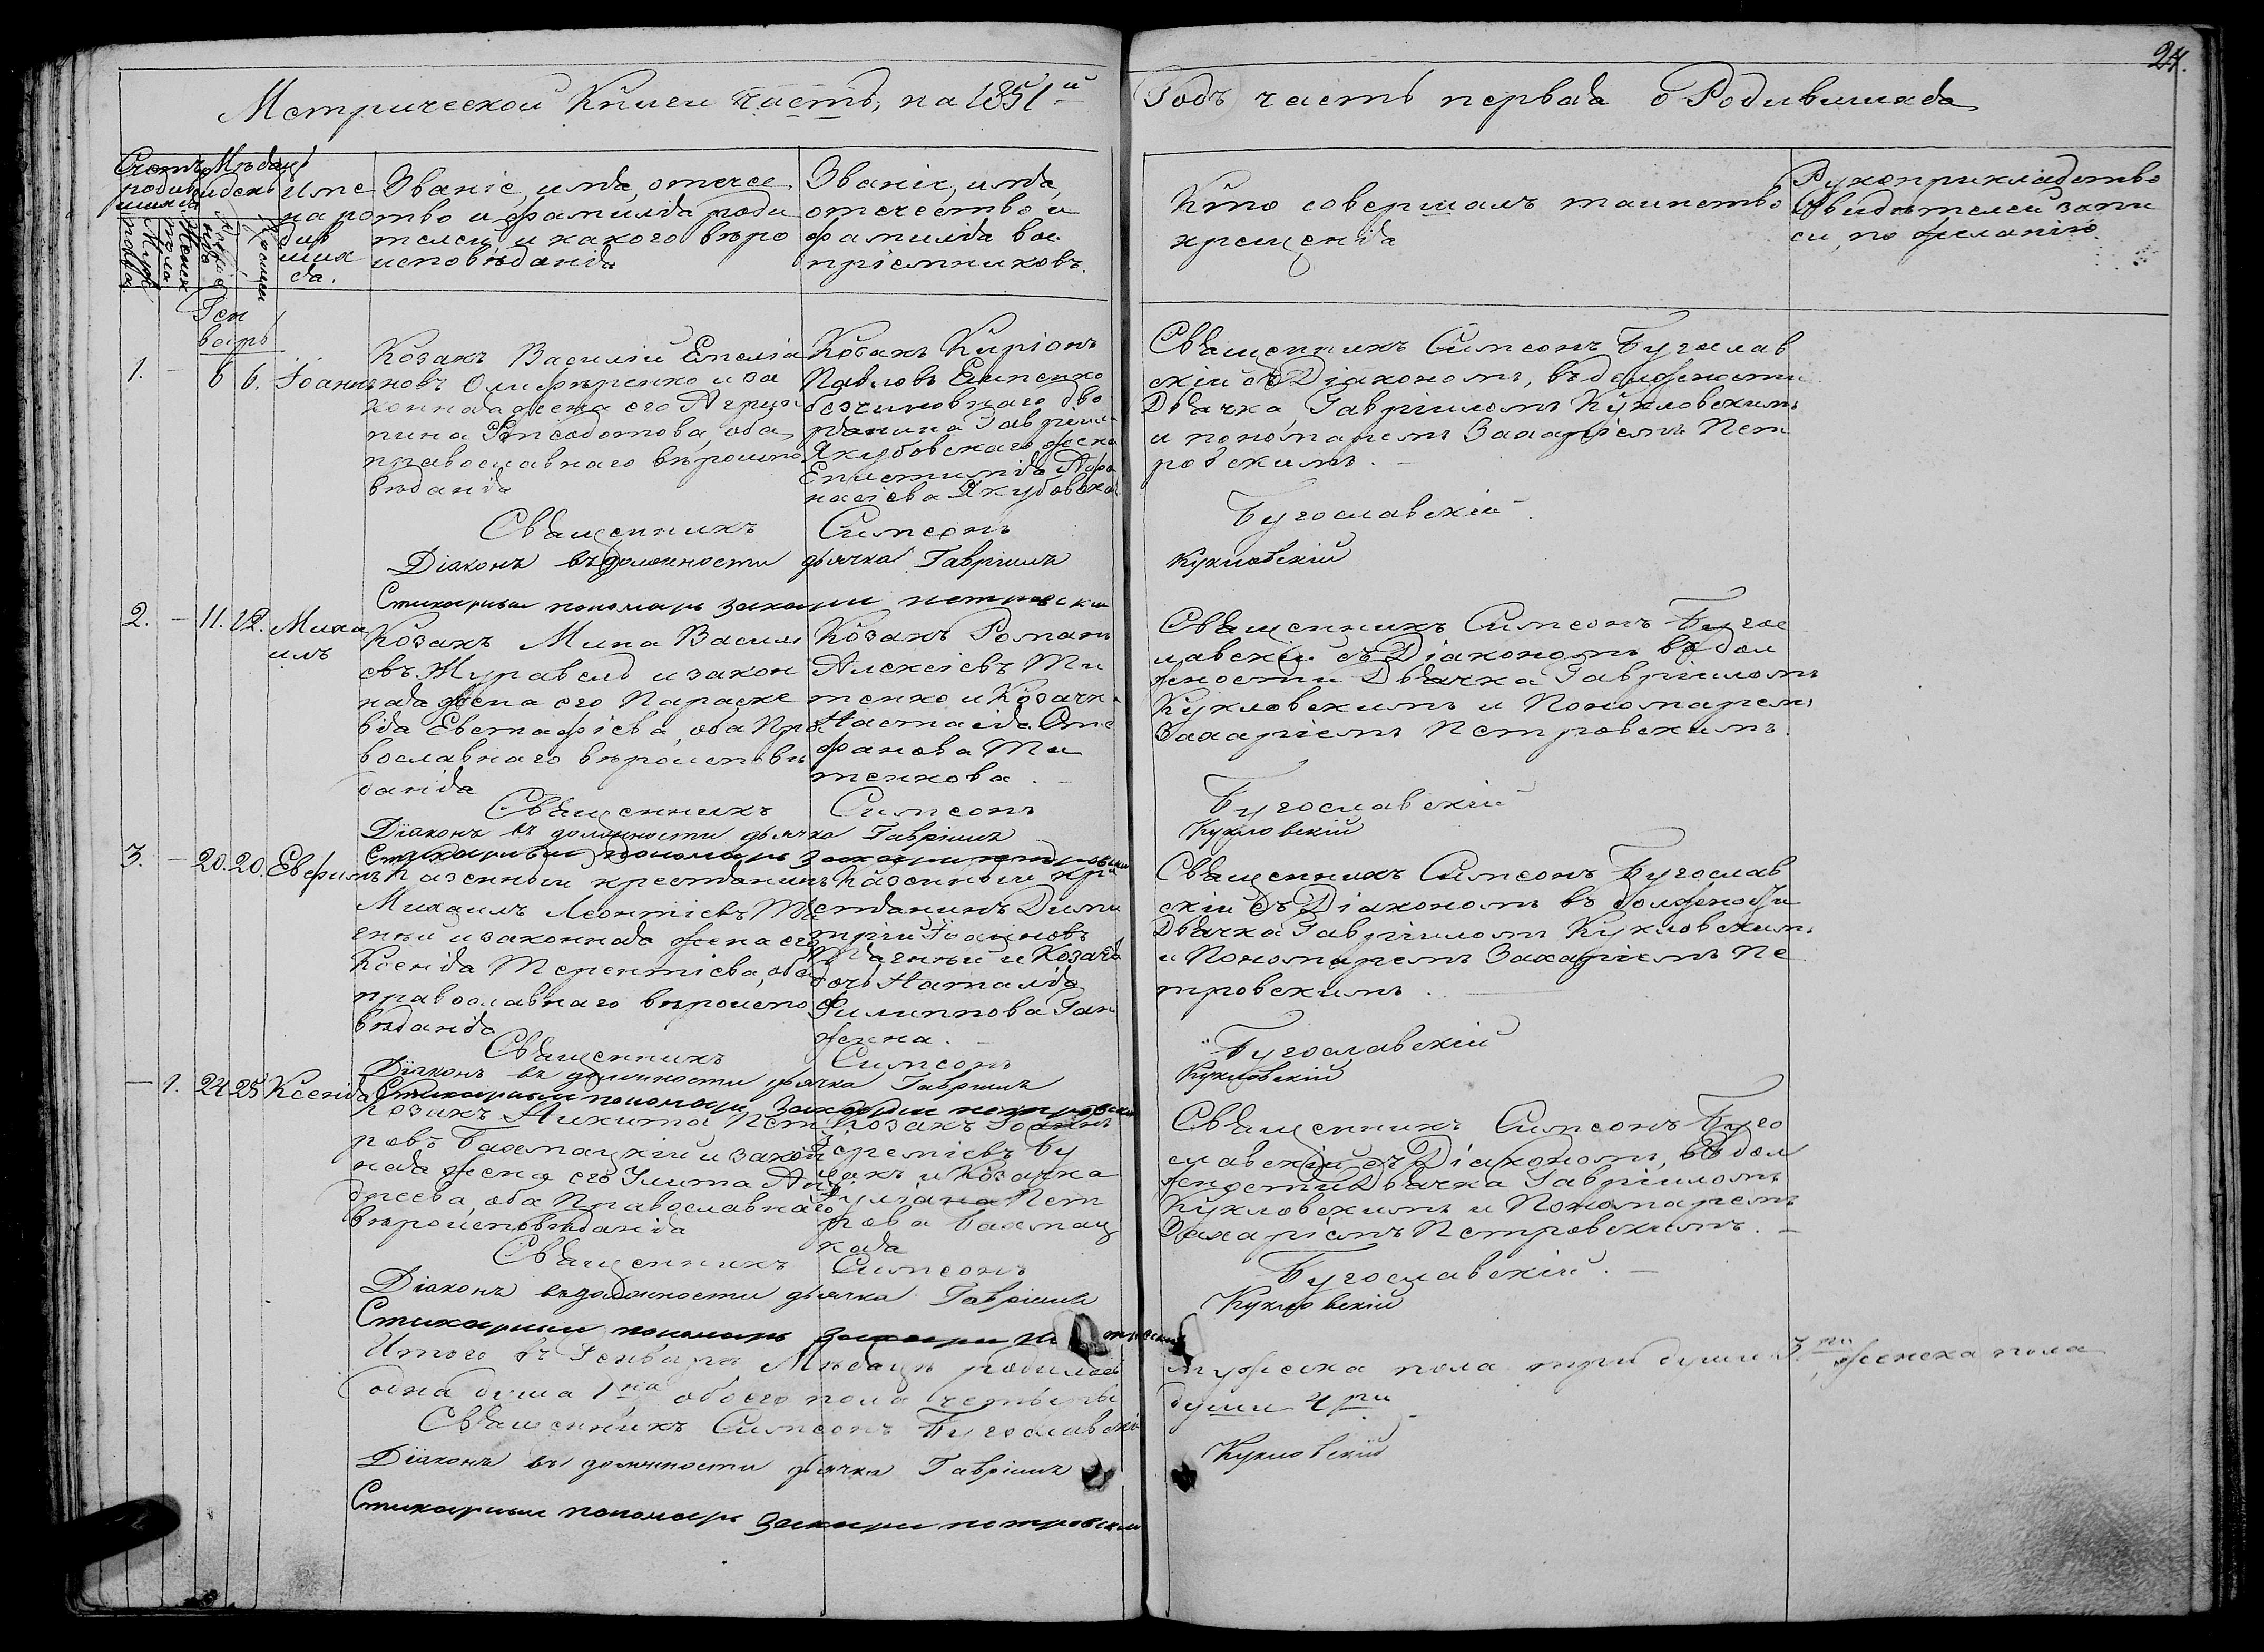 24.
Метрической Книги часть, на 1851й
Годъ часть первая о Родившихся
Счетъ родившихся
Мужеска пола.
Женска пола
Мѣсяцъ и день
Рожденія
Крещенія
Имена родившихся.
Званіе, имя, отчество и фамилія родителей, и какого вѣроисповѣданія
Званіе, имя, отчество и фамилія воспріемниковъ.
Кто совершалъ таинство крещенія
Рукоприкладство свидѣтелей записи по желанію
Генварь
1. - 6 6. Іоаннъ
Козакъ Василій Емеліа
новъ Олифѣренко и за
конная жена его Агрип
пина Ѳеодотова, оба
православнаго вѣроиспо
вѣданія
Козакъ Киріонъ
Павловъ
безчиновнаго дво
рянина Гавріила
Якубовскаго жена
Епистимія Афа
насіева Якубовска
Священникъ Симеонъ Бугослав
скій съ Діакономъ, въ должности
Дьячка, Гавріиломъ Кукловскимъ
и пономаремъ Захаріемъ Пет
ровскимъ.
Священникъ Симеонъ Бугославскій
Діаконъ въ должности дьячка Гавріилъ Кукловскій
Стихарный пономарь Захарий петровский
2. - 11. 12. Миха
илъ
Козакъ Мина Василі
евъ Журавель и закон
ная жена его Параске
вія Евстафіева, оба Пра
вославнаго вѣроисповѣ
данія
Козакъ Романъ
Алексіевъ Ти
тенко и Козачка
Настасія Сте
фанова Ти
тенкова.
Священникъ Симеонъ Бугос
лавскій съ Діакономъ въ дол
жности Дьячка Гавріиломъ
Кукловскимъ и Пономаремъ
Захаріемъ Петровскимъ.
Священникъ Симеонъ Бугославскій
Діаконъ въ должности дьячка Гавріилъ Кукловскій
Стихарный пономарь Захарий петровский
3. - 20. 20. Евфимъ
Казенный крестянинъ
Михаилъ Леонтіевъ Тя
гный и законная жена его
Ксенія Терентіева, оба
православнаго вѣроиспо
вѣданія
Казенный кре
стянинъ Дими
трій Іоанновъ
Тягный и Козача
дочь Наталія
Филиппова Ган
жина.
Священникъ Симеонъ Бугослав
скій съ Діакономъ въ должности
Дьячка Гавріиломъ Кукловскимъ
и Пономаремъ Захаріемъ Пе
тровскимъ.
Священникъ Симеонъ Бугославскій
Діаконъ въ должности дьячка Гавріилъ Кукловскій
Стихарный пономарь Захарий петровский
- 1. 24 25 Ксенія
Козакъ Никита Пет
ровъ Бахмацкій и закон
ная жена его Улита Ан
дреева, оба Православнаго
вѣроисповѣданія
Козакъ Іоаннъ
Іереміевъ Бу
цакъ и Козачка
Іуліана Пет
рова Бахмац
кая
Священникъ Симеонъ Буго
славскій съ Діакономъ, въ дол
жности Дьячка Гавріиломъ
Кукловскимъ и Пономаремъ
Захаріемъ Петровскимъ.
Священникъ Симеонъ Бугославскій.
Діаконъ въ должности дьячка Гавріилъ Кукловскій
Стихарный пономарь Захарий петровский
Итого въ Генварѣ Мѣсяцѣ родилось мужеска пола три души 3ри, женска пола
одна душа 1на, обоего пола четыре души 4ри
Священникъ Симеонъ Бугославскій
Діаконъ въ должности дьячка Гавріилъ Кукловскій
Стихарный пономарь Захарий петровский